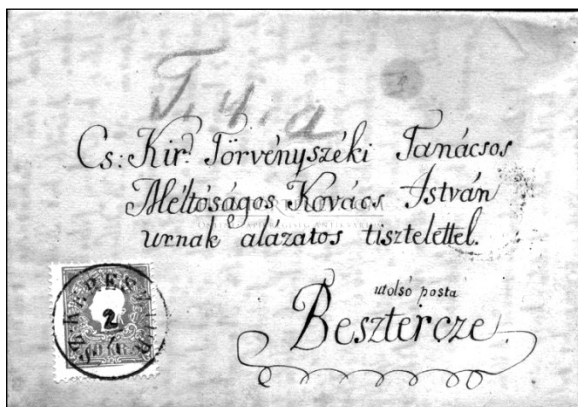 T. y. a
Cs: Kir. Törvényszéki Tanácsos
Méltóságos Kovács István
urnak alázatos tisztelettel.
utolsó posta
Besztercze.
2